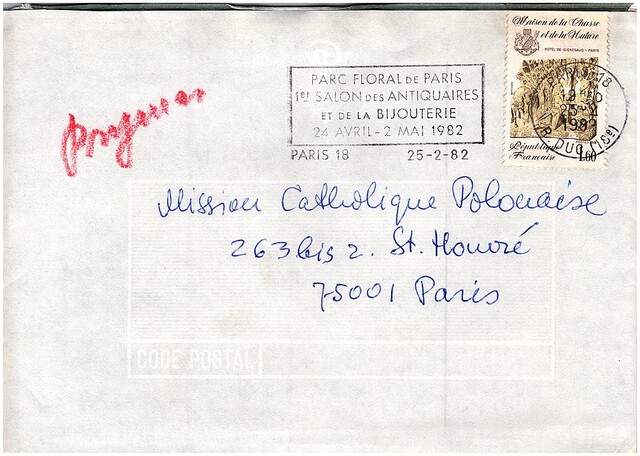 Maison de la Chasse
et de la Nature
HOTEL DE GUENEGAUD - PARIS
PARC FLORAL DE PARIS
1er SALON DES ANTIQUAIRES
ET DE LA BIJOUTERIE
24 AVRIL - 2 MAI 1982
PARIS 18 25-2-82
PARIS 18
1982
R. DUC (18e)
République
Française 1,60
Mission Catholique Polonaise
263 bis 2. St. Honoré
75001 Paris
CODE POSTAL